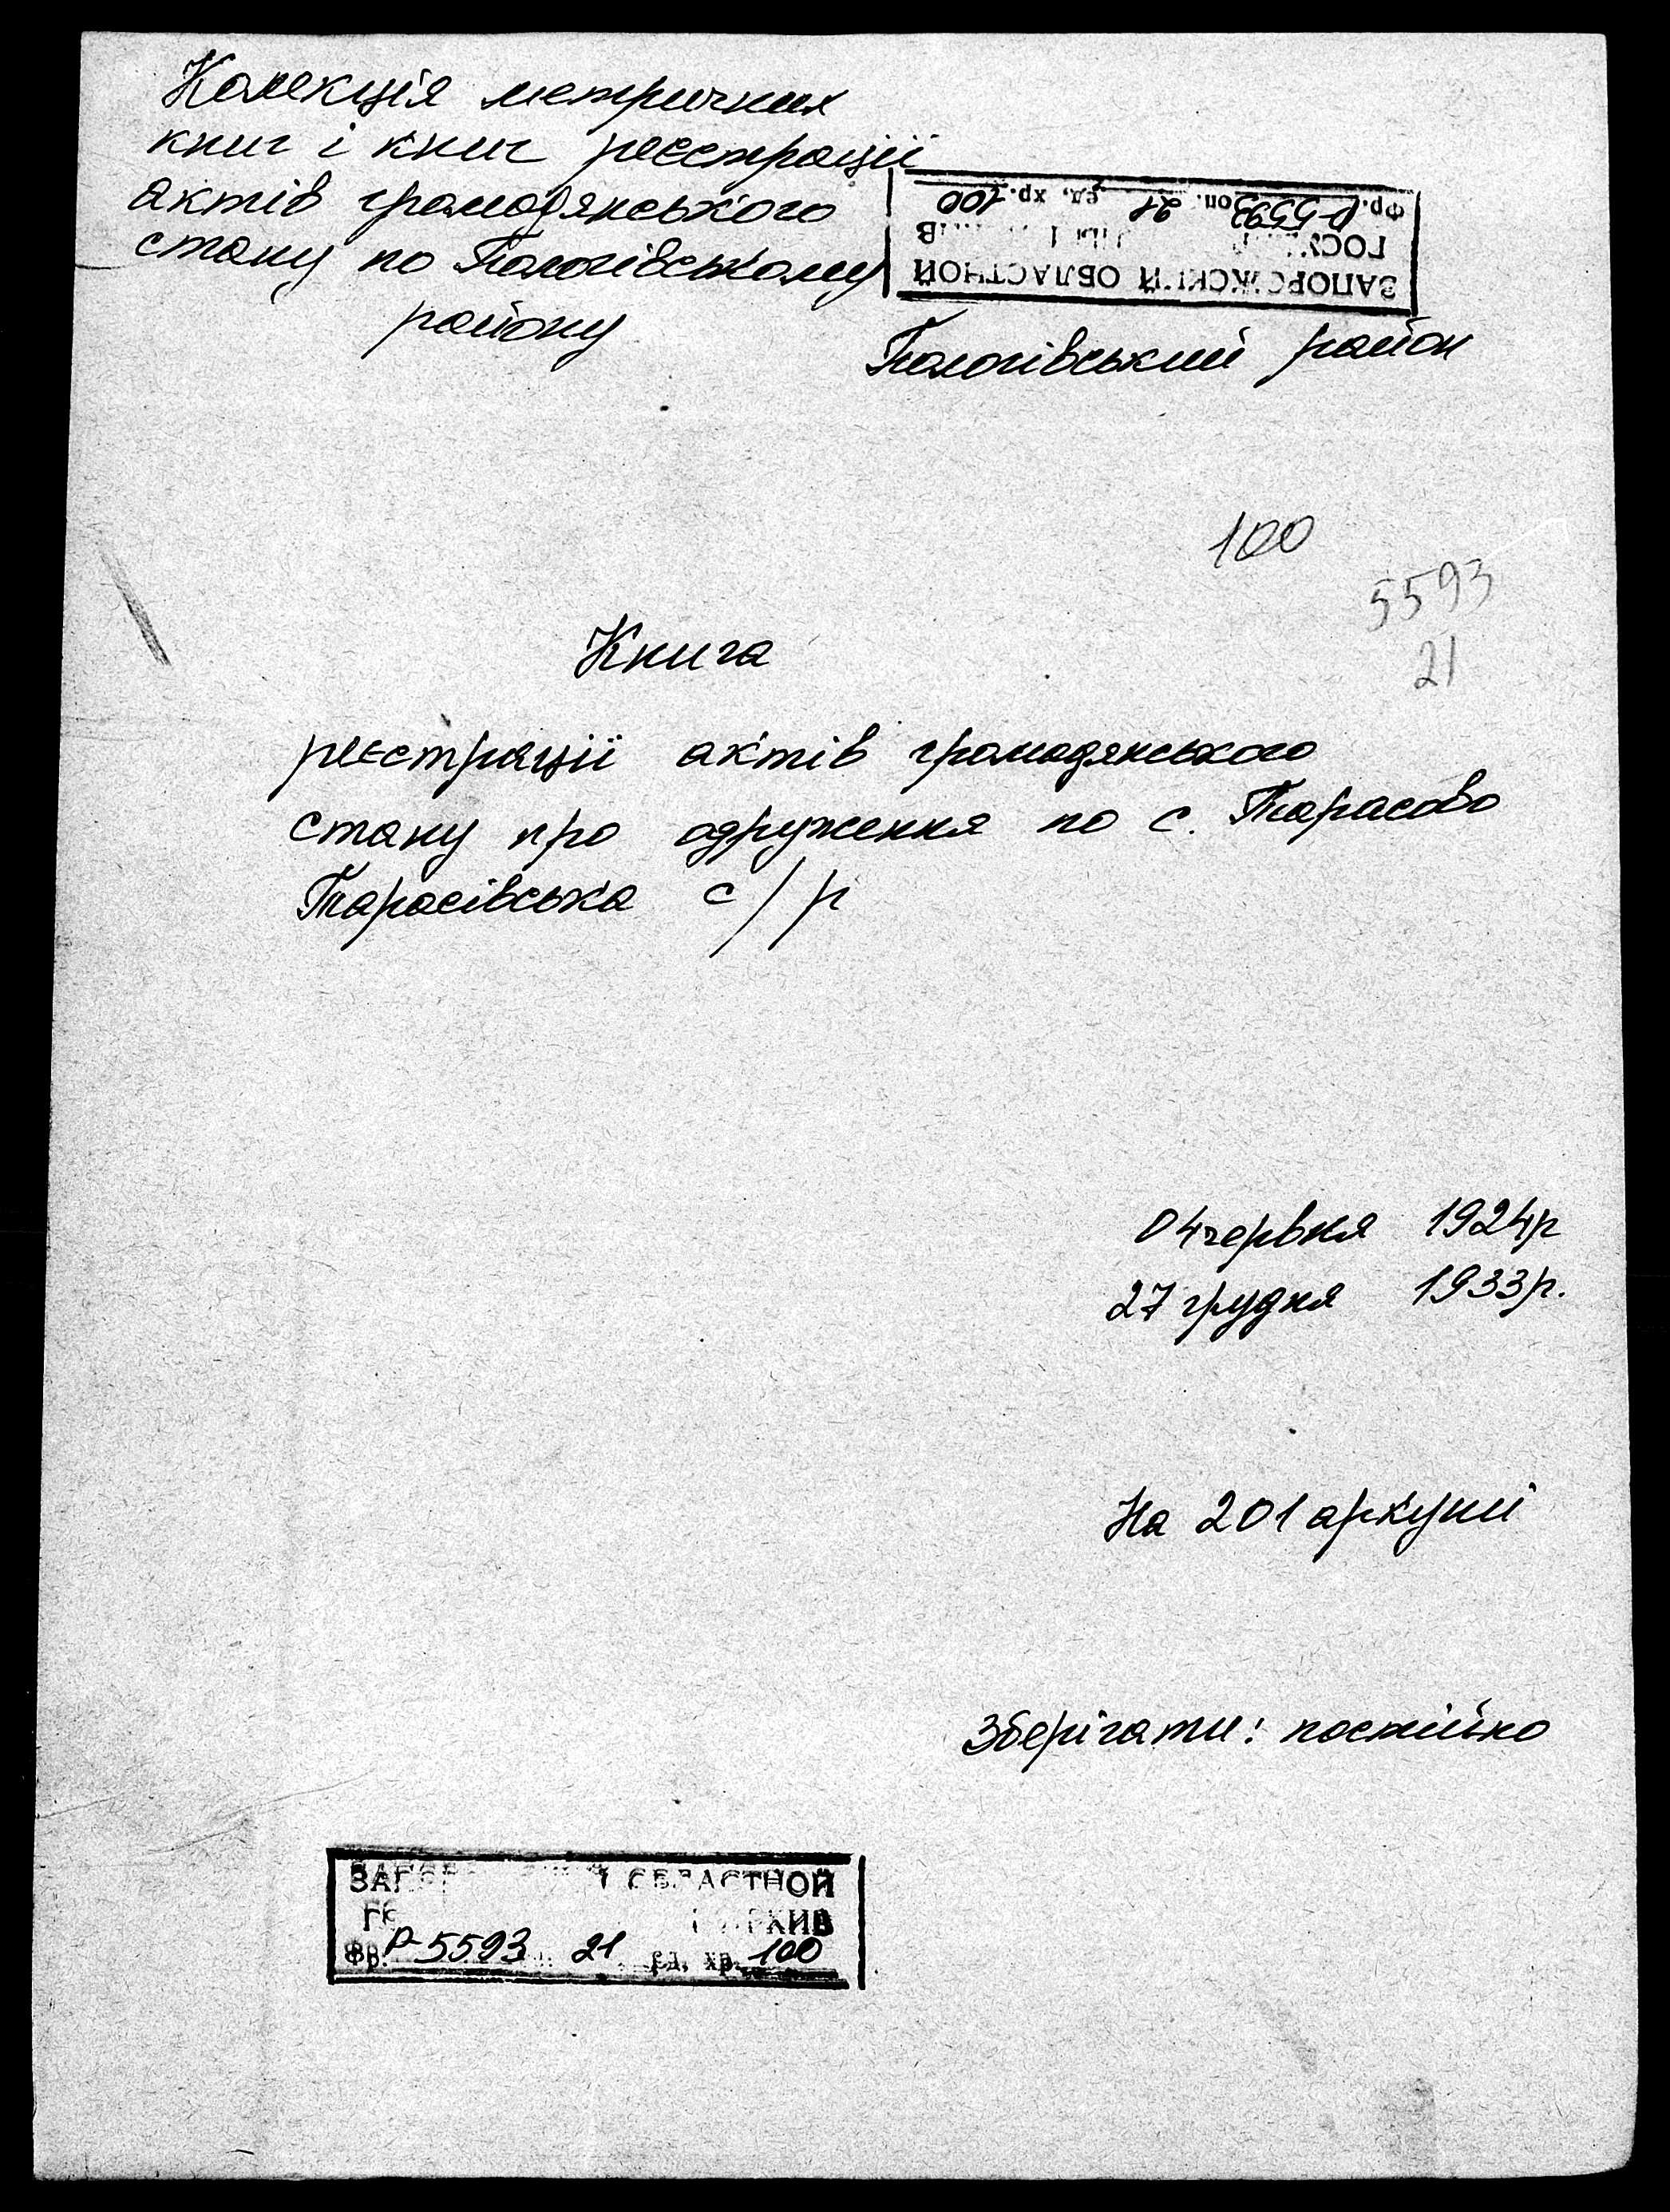 Колекція метричних
книг і книг реєстрації
актів громадянського
стану по Пологівському
району
ЗАПОРОЖСКИЙ ОБЛАСТНОЙ
Фр. Р-5593 оп. 21 ед. хр. 100
Пологівський район
100
5593
21
Книга
реєстрації актів громадянського
стану про одруження по с. Тарасово
Тарасівська с/р
04 червня 1924р
27 грудня 1933р.
На 201 аркуші
Зберігати: постійно
ОБЛАСТНОЙ
АРХИВ
Фр. Р-5593 21 ед. хр. 100